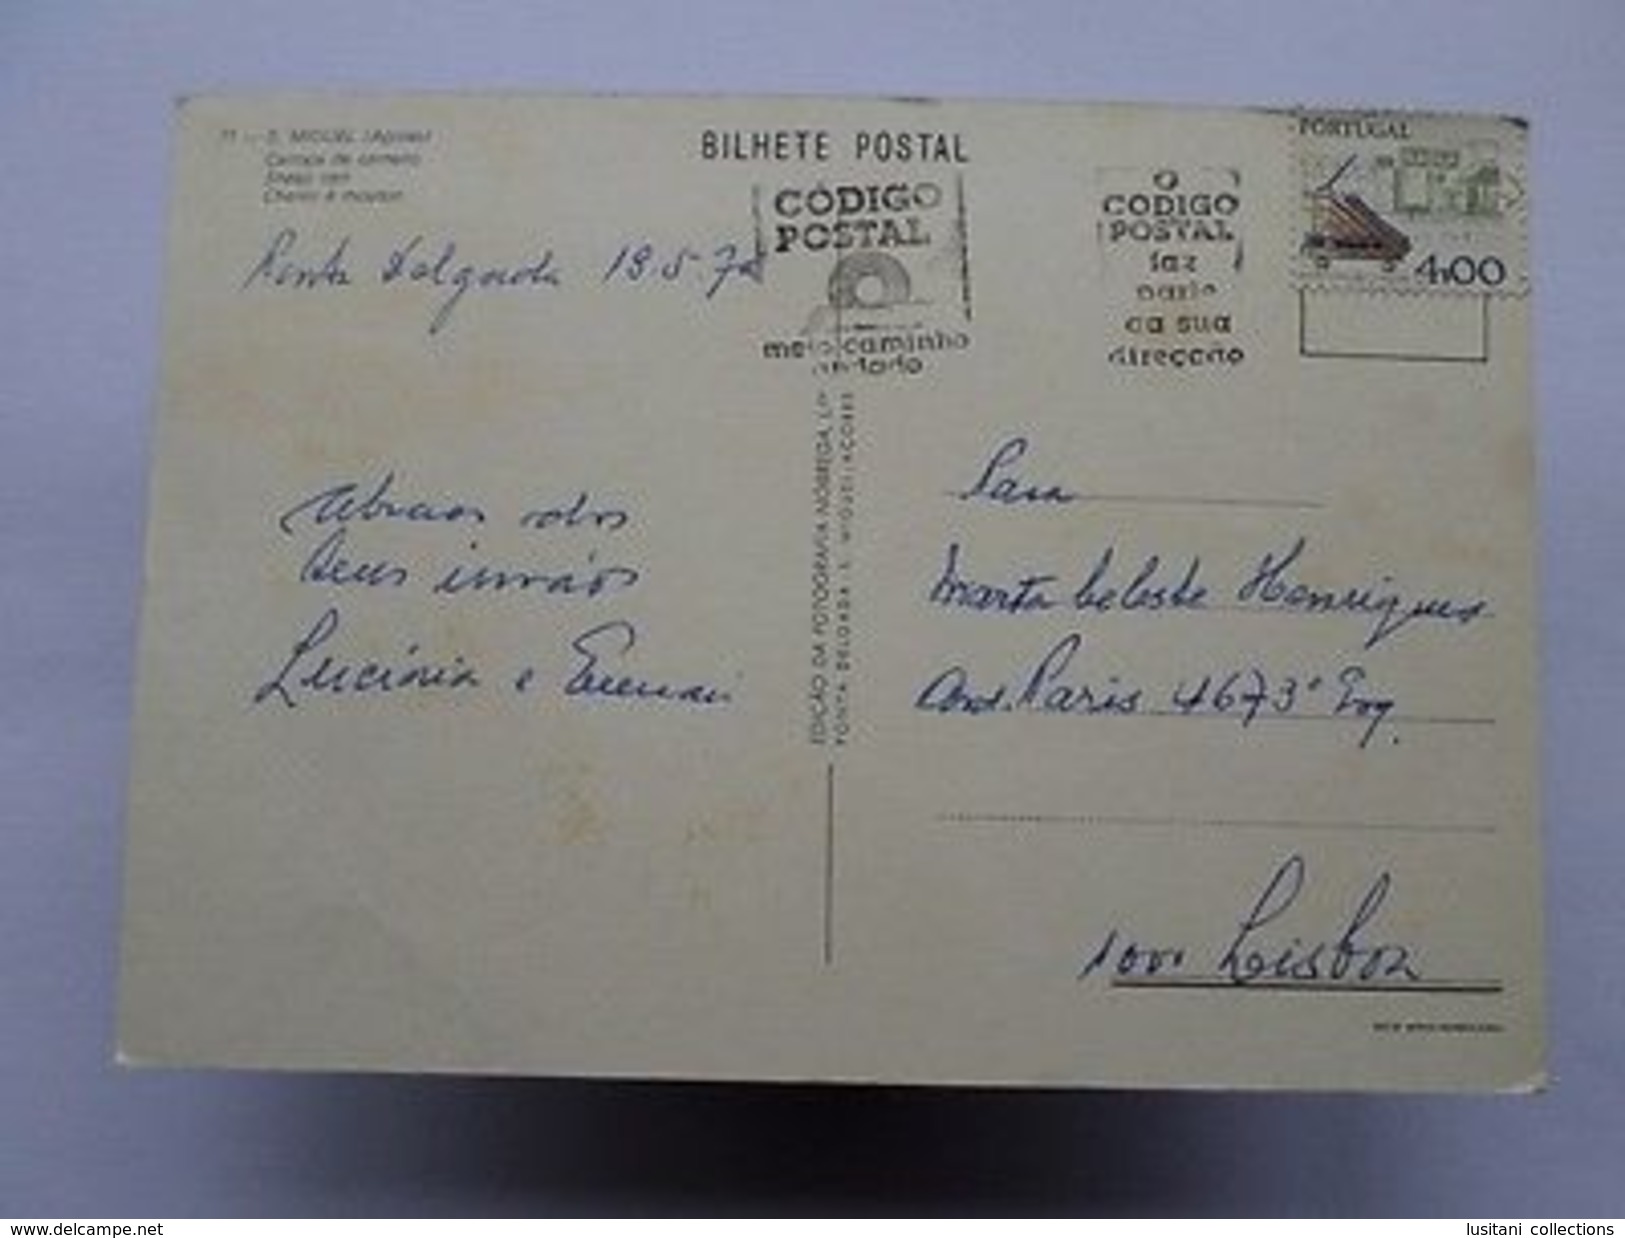 S. MIGUEL (Açores)
Carroça de carneiro
Sheep cart
BILHETE POSTAL
CÓDIGO
POSTAL
meio caminho
andado
O
CODIGO
POSTAL
faz
parte
da sua
direcção
PORTUGAL
4$00
Ponta Delgada 19.5.7
Abraços dos
seus irmãos
Lucínia e
EDIÇÃO DA FOTOGRAFIA NÓBREGA, L.DA
PONTA DELGADA S. MIGUEL AÇORES
Para
Marta Celeste Henriques
Paris 46 73º Esq.
1000 Lisboa
www.delcampe.net
lusitani collections